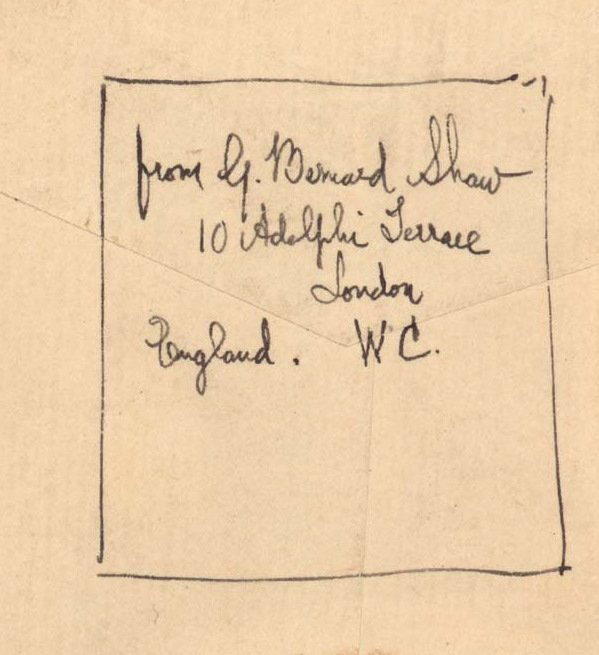 from G. Bernard Shaw
10 Adelphi Terrace
London
England. W C.